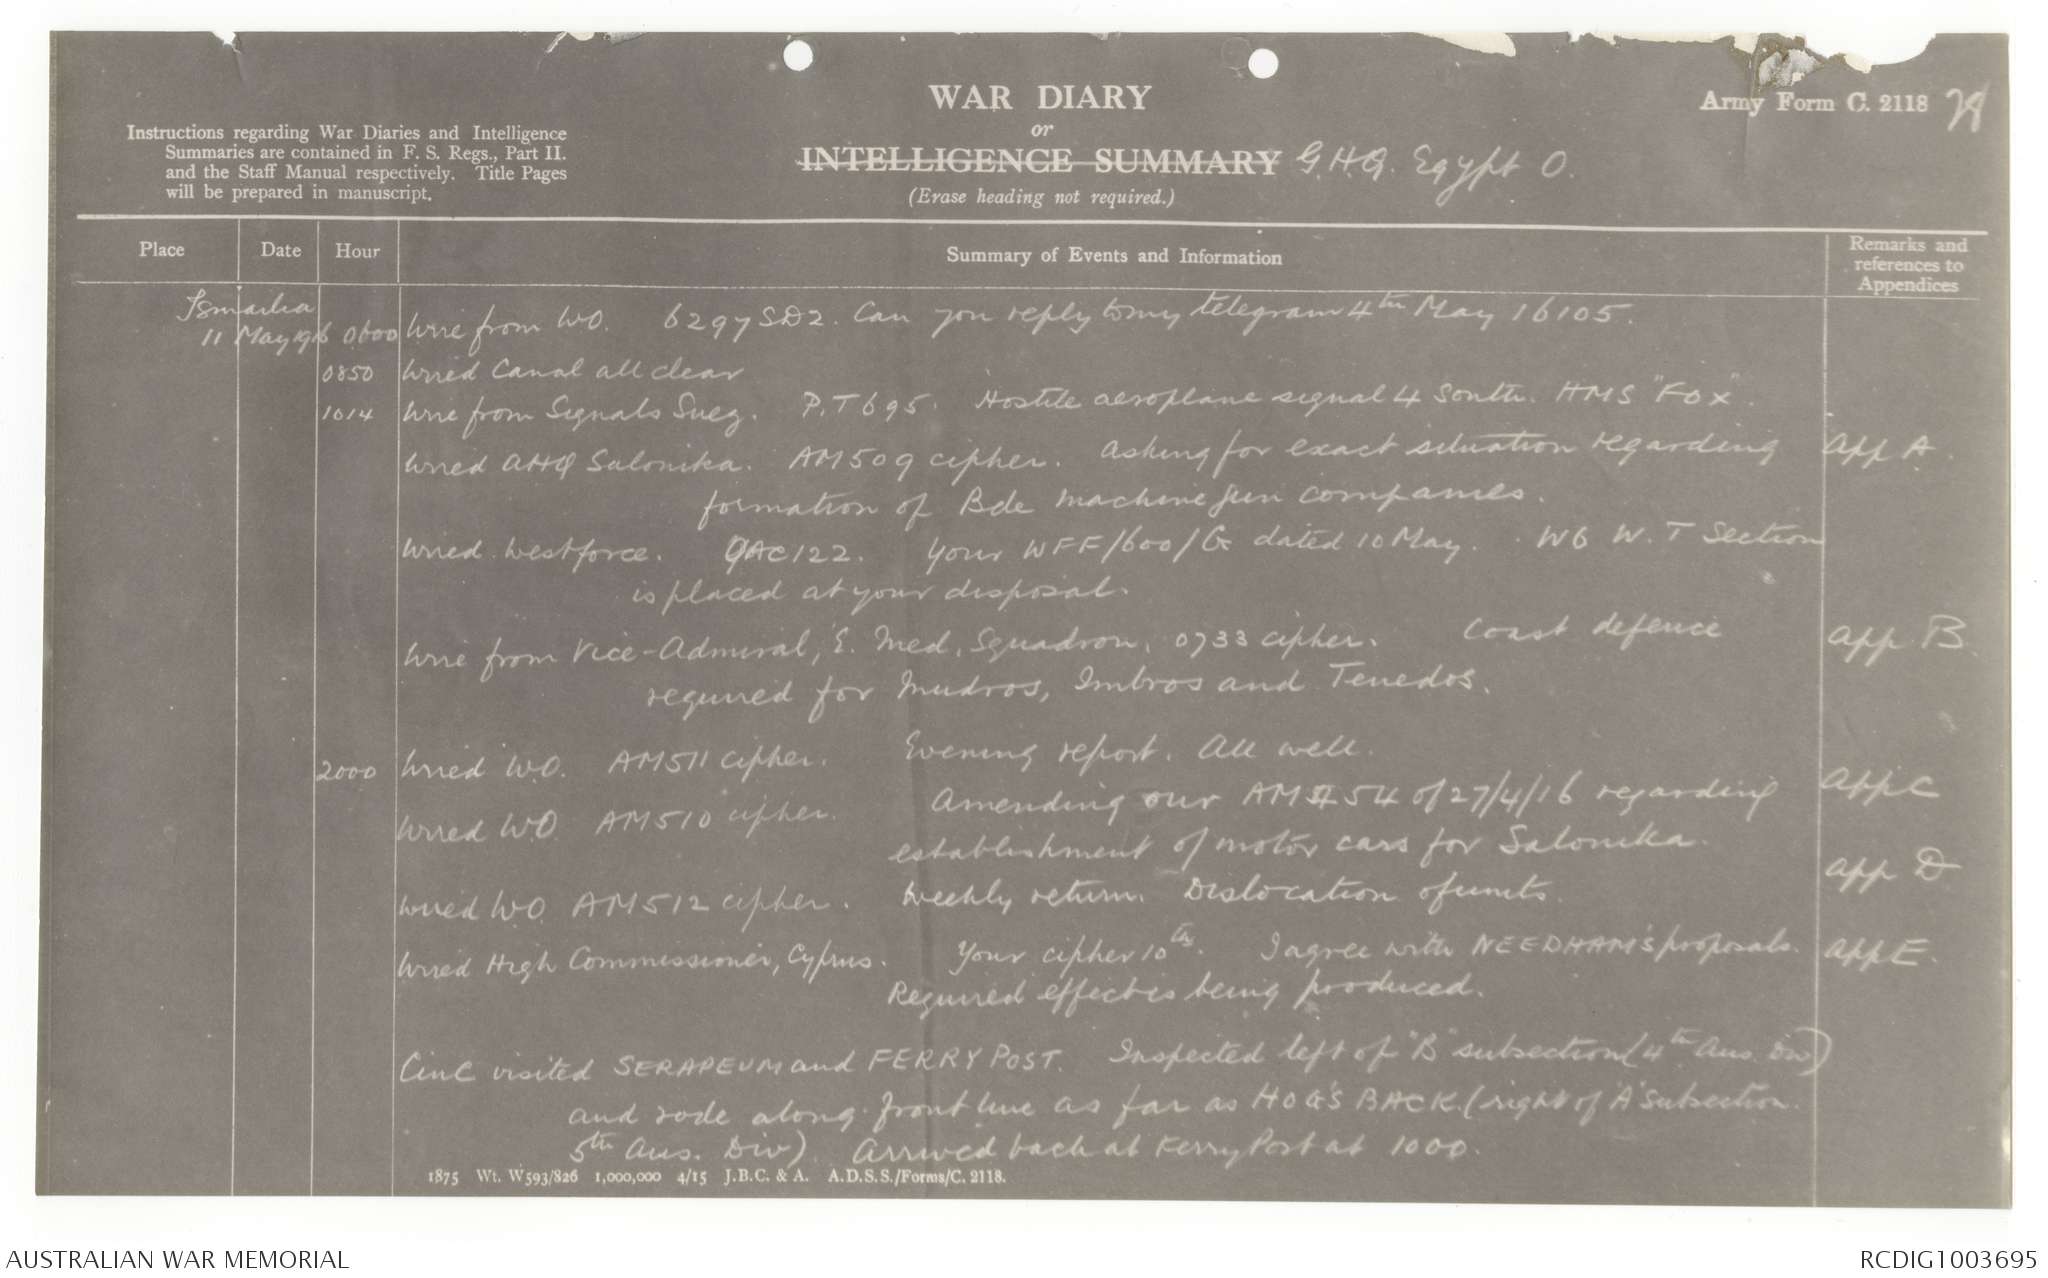 WAR DIARY
or
INTELLIGENCE SUMMARY G.H.Q. Egypt O.
(Erase heading not required.)
Army Form C. 2118
Instructions regarding War Diaries and Intelligence
Summaries are contained in F. S. Regs., Part II.
and the Staff Manual respectively. Title Pages
will be prepared in manuscript.
Place Date Hour Summary of Events and Information Remarks and references to Appendices
Ismailia
11 May 1916 0600 Wire from WO. 6297 SD2. Can you reply to my telegram 4th May 16105.
0850 Wired Canal all clear
1014 Wire from Signals Suez. P.T 695. Hostile aeroplane signal 4 South. HMS "FOX".
Wired AHQ Salonika. AM509 cipher. Asking for exact situation regarding App A.
formation of Bde machine gun companies.
Wired Westforce. QAC122. Your WFF/600/G dated 10 May. W6 W.T Section
is placed at your disposal.
Wire from Vice-Admiral, E. Med. Squadron, 0733 cipher. Coast defence App B
required for Mudros, Imbros and Tenedos.
2000 Wired W.O. AM511 cipher. Evening report. All well.
Wired W.O. AM510 cipher. Amending our AM454 of 27/4/16 regarding App C
establishment of motor cars for Salonika.
Wired W.O. AM512 cipher. Weekly return. Dislocation of units. App D
Wired High Commissioner, Cyprus. Your cipher 10th. I agree with NEEDHAM'S proposals. App E.
Required effect is being produced.
CinC visited SERAPEUM and FERRY POST. Inspected left of "B" subsection (4th Aus. Div)
and rode along front line as far as HOG'S BACK (right of 'A' subsection
5th Aus. Div). Arrived back at Ferry Post at 1000.
1875 Wt. W593/826 1,000,000 4/15 J.B.C. & A. A.D.S.S./Forms/C. 2118.
AUSTRALIAN WAR MEMORIAL
RCDIG1003695